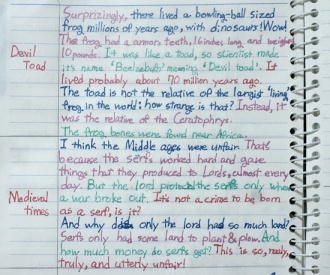 Surprizingly, there lived a bowling-ball sized
frog millions of years ago, with dinosaurs! Wow!
The frog had a armor, teeth, 16 inches long and weighed
10 pounds. It was like a toad, so scientist made
it's name 'Beelzebufo' meaning 'Devil toad'. It
lived probably about 70 million years ago.
The toad is not the relative of the largist living
frog in the world; how strange is that? Instead, it
was the relative of the Ceratophrys.
The frog bones were found near Africa.
Devil
Toad
I think the Middle ages were unfair. That's
because the serfs worked hard and gave
things that they produced to Lords, almost every
day. But the lord protected the serfs only when
a war broke out. It's not a crime to be born
as a serf, is it?
And why did only the lord had so much land?
Serfs only had some land to plant & plow. And
how much money do serfs get? This is so, really,
truly, and utterly unfair!
Medieval
times